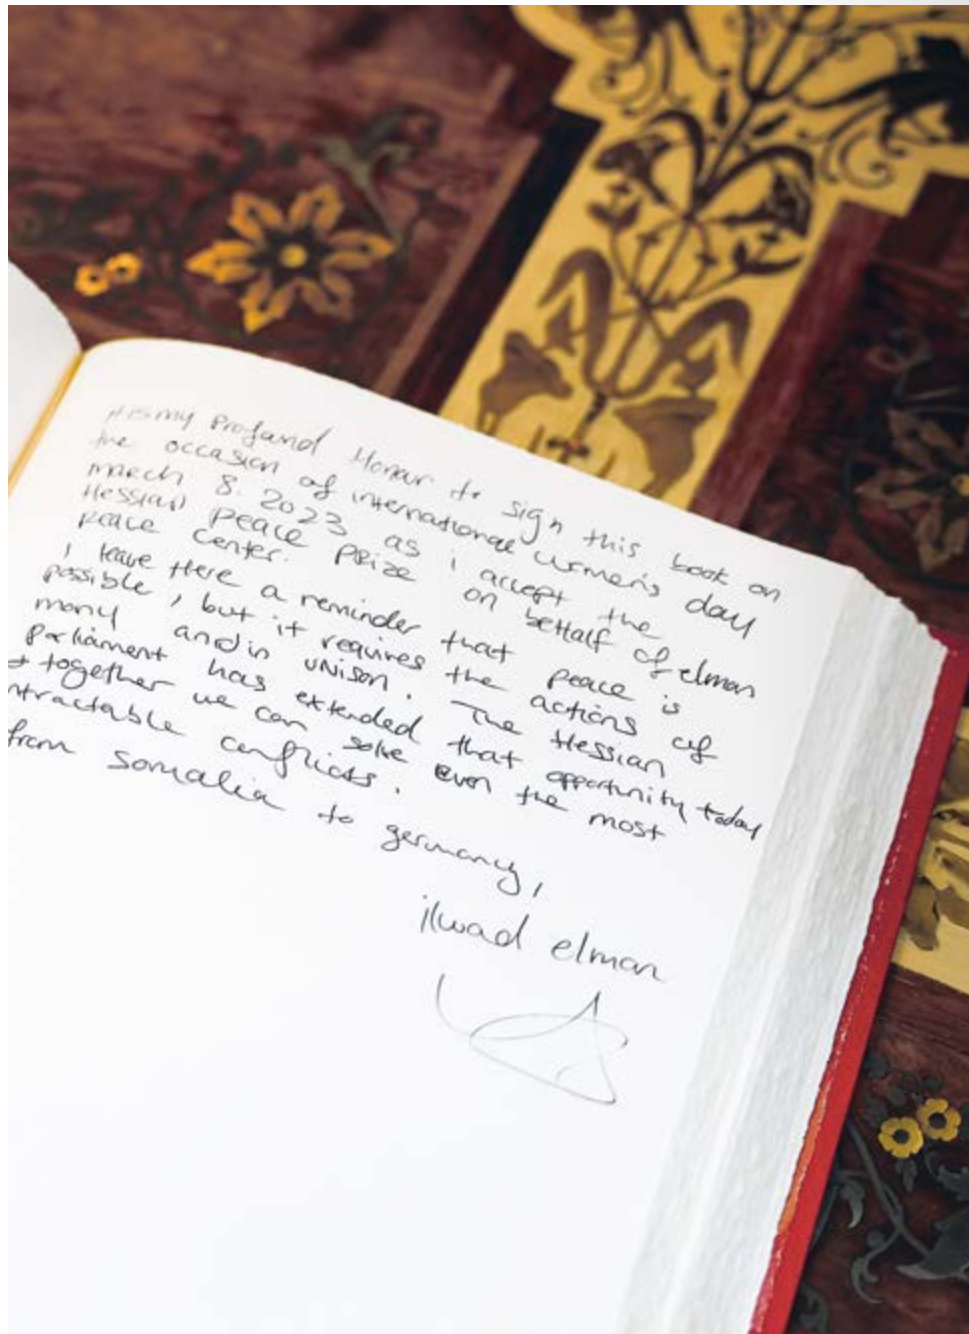 it is my profound Honour to sign this book on
the occasion of international women's day
march 8. 2023 as i accept the
Hessian Peace Prize on behalf of elman
peace center.
I leave Here a reminder that peace is
possible, but it requires the actions of
many and in unison. The Hessian
parliament has extended that opportunity today
together we can solve even the most
ntractable conflicts.
from somalia to germany,
ilwad elman